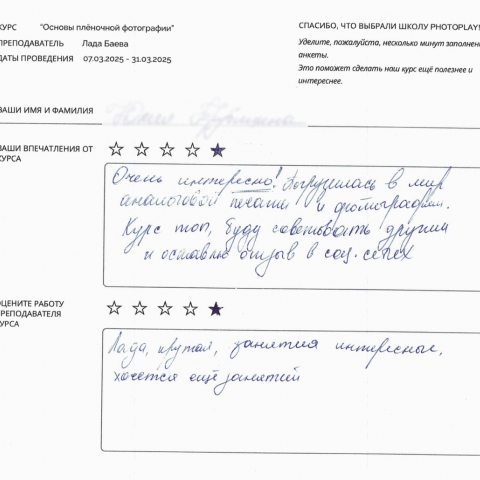 КУРС "Основы плёночной фотографии"
ПРЕПОДАВАТЕЛЬ Лада Баева
ДАТЫ ПРОВЕДЕНИЯ 07.03.2025 - 31.03.2025
СПАСИБО, ЧТО ВЫБРАЛИ ШКОЛУ PHOTOPLAY!
Уделите, пожалуйста, несколько минут заполнен
анкеты.
Это поможет сделать наш курс ещё полезнее и
интереснее.
ВАШИ ИМЯ И ФАМИЛИЯ Юлия
ВАШИ ВПЕЧАТЛЕНИЯ ОТ
КУРСА
Очень интересно! Погрузилась в мир
аналоговой печати и фотографии.
Курс топ, буду советовать другим
и оставлю отзыв в соц. сетях
ОЦЕНИТЕ РАБОТУ
ПРЕПОДАВАТЕЛЯ
КУРСА
Лада, крутая, занятия интересные,
хочется ещё занятий